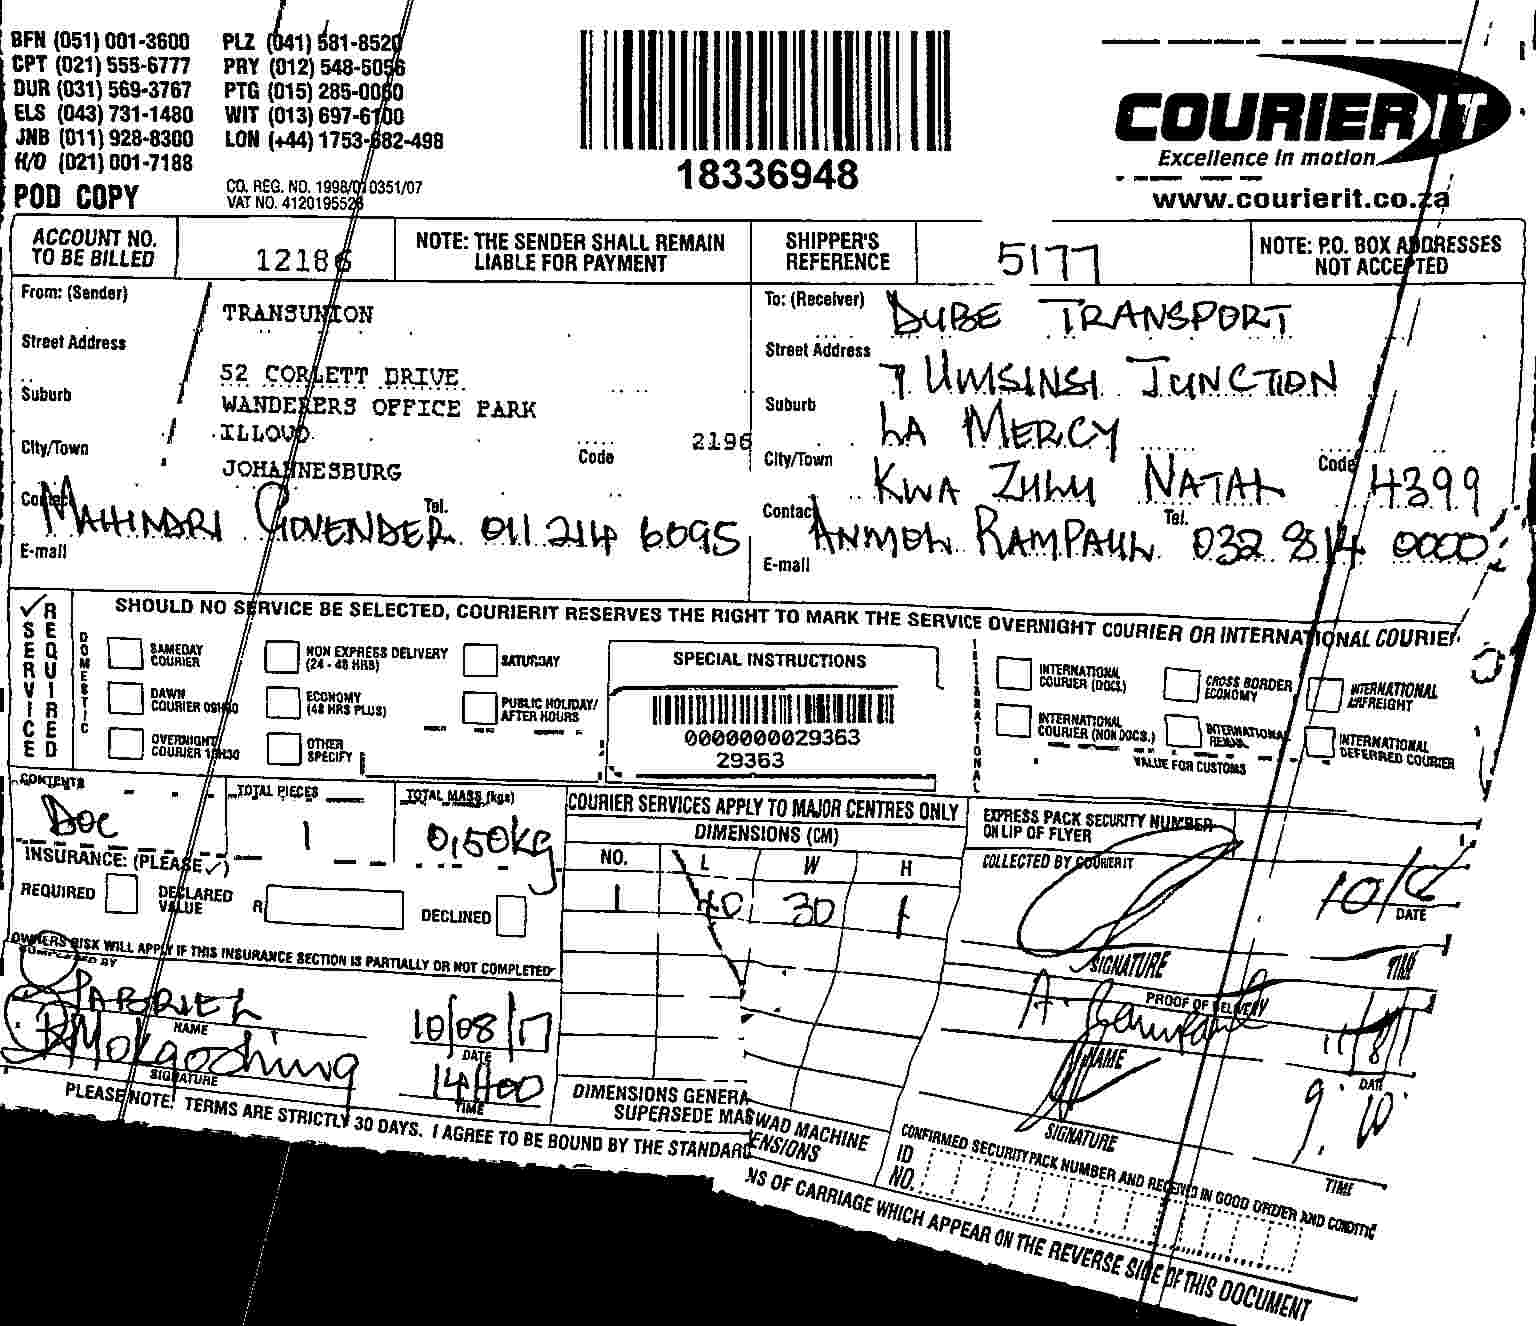 BFN (051) 001-3600 PLZ (041) 581-8520
CPT (021) 555-6777 PRY (012) 548-5056
DUR (031) 569-3767 PTG (015) 285-0060
ELS (043) 731-1480 WIT (013) 697-6100
JNB (011) 928-8300 LON (+44) 1753-682-498
H/O (021) 001-7188
POD COPY
CO. REG. NO. 1998/010351/07
VAT NO. 4120195526
18336948
COURIERIT
Excellence in motion
www.courierit.co.za
ACCOUNT NO. TO BE BILLED
12186
NOTE: THE SENDER SHALL REMAIN LIABLE FOR PAYMENT
SHIPPER'S REFERENCE
5177
NOTE: P.O. BOX ADDRESSES NOT ACCEPTED
From: (Sender)
TRANSUNION
Street Address
52 CORLETT DRIVE
Suburb
WANDERERS OFFICE PARK
ILLOVO
City/Town
JOHANNESBURG
Code 2196
Contact
Tel. 011 214 6095
E-mail
To: (Receiver) DUBE TRANSPORT
Street Address 7 UMSINSI JUNCTION
Suburb LA MERCY
City/Town KWA ZULU NATAL Code 4399
Contact ANMOL RAMPAUL Tel. 032 814 0000
E-mail
SERVICE REQUIRED
SHOULD NO SERVICE BE SELECTED, COURIERIT RESERVES THE RIGHT TO MARK THE SERVICE OVERNIGHT COURIER OR INTERNATIONAL COURIER
DOMESTIC
SAMEDAY COURIER
NON EXPRESS DELIVERY (24 - 48 HRS)
SATURDAY
DAWN COURIER
ECONOMY (48 HRS PLUS)
PUBLIC HOLIDAY/ AFTER HOURS
OVERNIGHT COURIER
OTHER SPECIFY
SPECIAL INSTRUCTIONS
0000000029363
29363
INTERNATIONAL
INTERNATIONAL COURIER (DOCS.)
CROSS BORDER ECONOMY
INTERNATIONAL AIRFREIGHT
INTERNATIONAL COURIER (NON DOCS.)
INTERNATIONAL
INTERNATIONAL DEFERRED COURIER
VALUE FOR CUSTOMS
CONTENTS
DOC
TOTAL PIECES
1
TOTAL MASS (kgs)
0,50kg
INSURANCE: (PLEASE ✓)
REQUIRED
DECLARED VALUE R
DECLINED
OWNERS RISK WILL APPLY IF THIS INSURANCE SECTION IS PARTIALLY OR NOT COMPLETED
COMPLETED BY
GABRIEL
NAME
10/08/17
DATE
SIGNATURE
14H00
TIME
PLEASE NOTE: TERMS ARE STRICTLY 30 DAYS. I AGREE TO BE BOUND BY THE STANDARD
NS OF CARRIAGE WHICH APPEAR ON THE REVERSE SIDE OF THIS DOCUMENT
COURIER SERVICES APPLY TO MAJOR CENTRES ONLY
DIMENSIONS (CM)
NO. L W H
1 40 30 1
DIMENSIONS GENERA
SUPERSEDE MAS
WAD MACHINE
ENSIONS
EXPRESS PACK SECURITY NUMBER ON LIP OF FLYER
COLLECTED BY COURIERIT
DATE
SIGNATURE
TIME
PROOF OF DELIVERY
NAME
DATE
SIGNATURE
TIME
CONFIRMED SECURITY PACK NUMBER AND RECEIVED IN GOOD ORDER AND CONDITIO
ID NO.